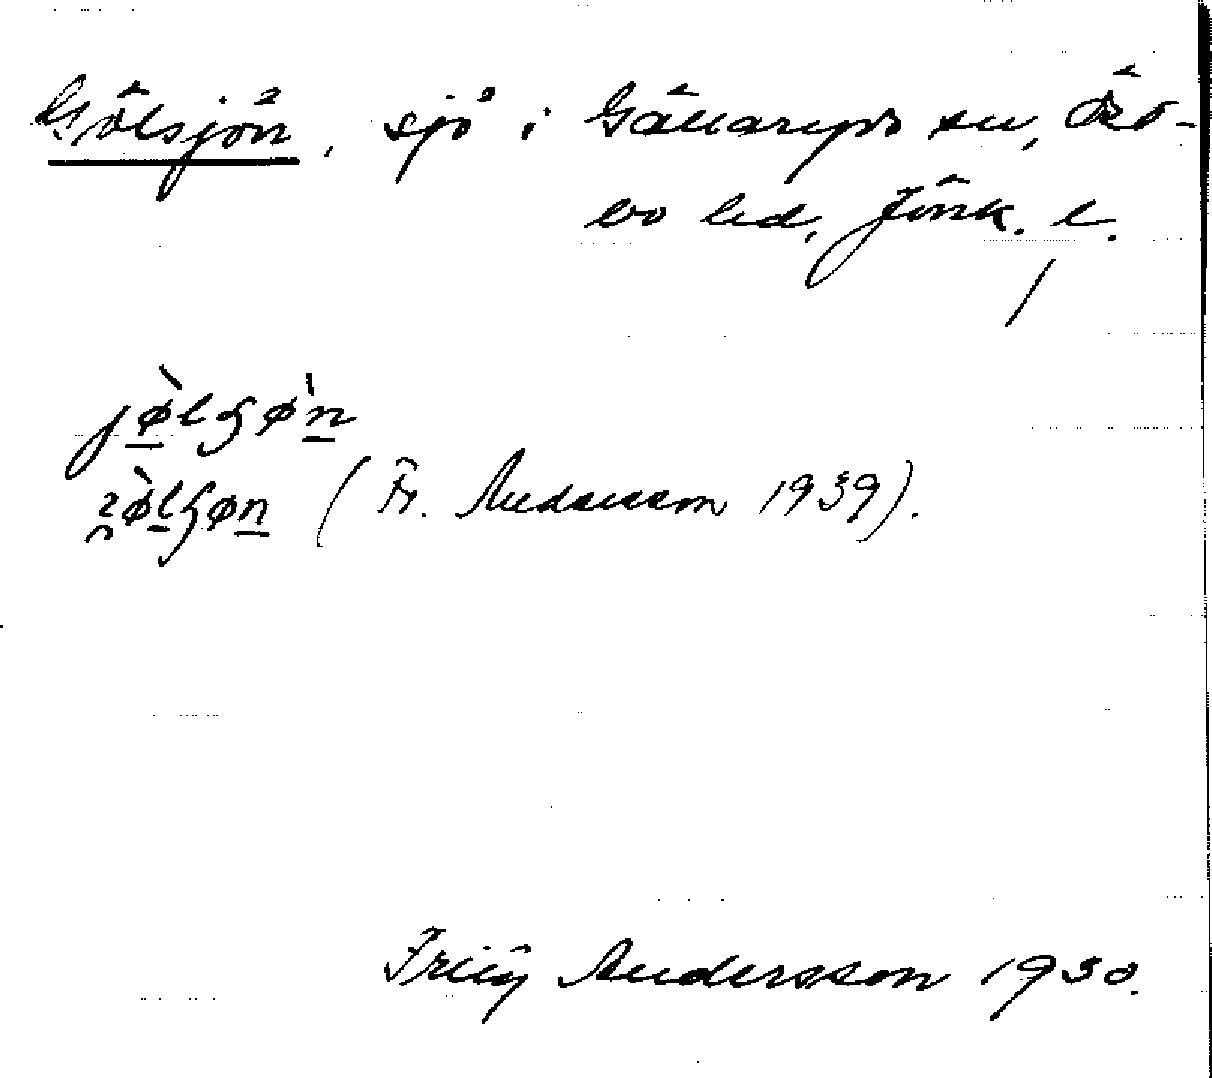 Gölsjön, sjö i Gällaryds sn, Östbo hd, Jönk. l.
jø̀lʃøˈn
(Fr. Andersson 1939).
Frity Andersson 1930.